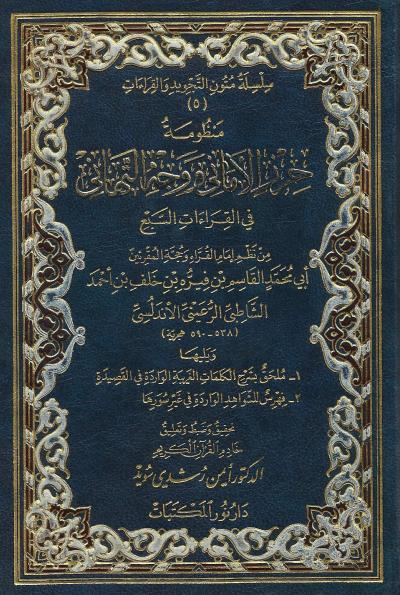 سِلْسِلَةُ مُتُونِ التَّجْوِيدِ وَالقِرَاءَاتِ
(٥)
مَنْظُومَةُ
حِرْزُ الأَمَانِي وَوَجْهُ التَّهَانِي
فِي القِرَاءَاتِ السَّبْعِ
مِنْ نَظْمِ إِمَامِ القُرَّاءِ وَحُجَّةِ المُقْرِئِينَ
أَبِي مُحَمَّدٍ القَاسِمِ بْنِ فِيرُّهْ بْنِ خَلَفِ بْنِ أَحْمَدَ
الشَّاطِبِيِّ الرُّعَيْنِيِّ الأَنْدَلُسِيِّ
(٥٣٨-٥٩٠ هجرية)
وَيَلِيهَا
١- مُلْحَقٌ بِشَرْحِ الكَلِمَاتِ الغَرِيبَةِ الوَارِدَةِ فِي القَصِيدَةِ
٢- فِهْرِسٌ لِلشَّوَاهِدِ الوَارِدَةِ فِي غَيْرِ سُوَرِهَا
تحقيق وضبط وتعليق
خَادِمِ القُرْآنِ الكَرِيمِ
الدكتور أيمن رشدي سويد
دَارُ نُورِ المَكْتَبَاتِ